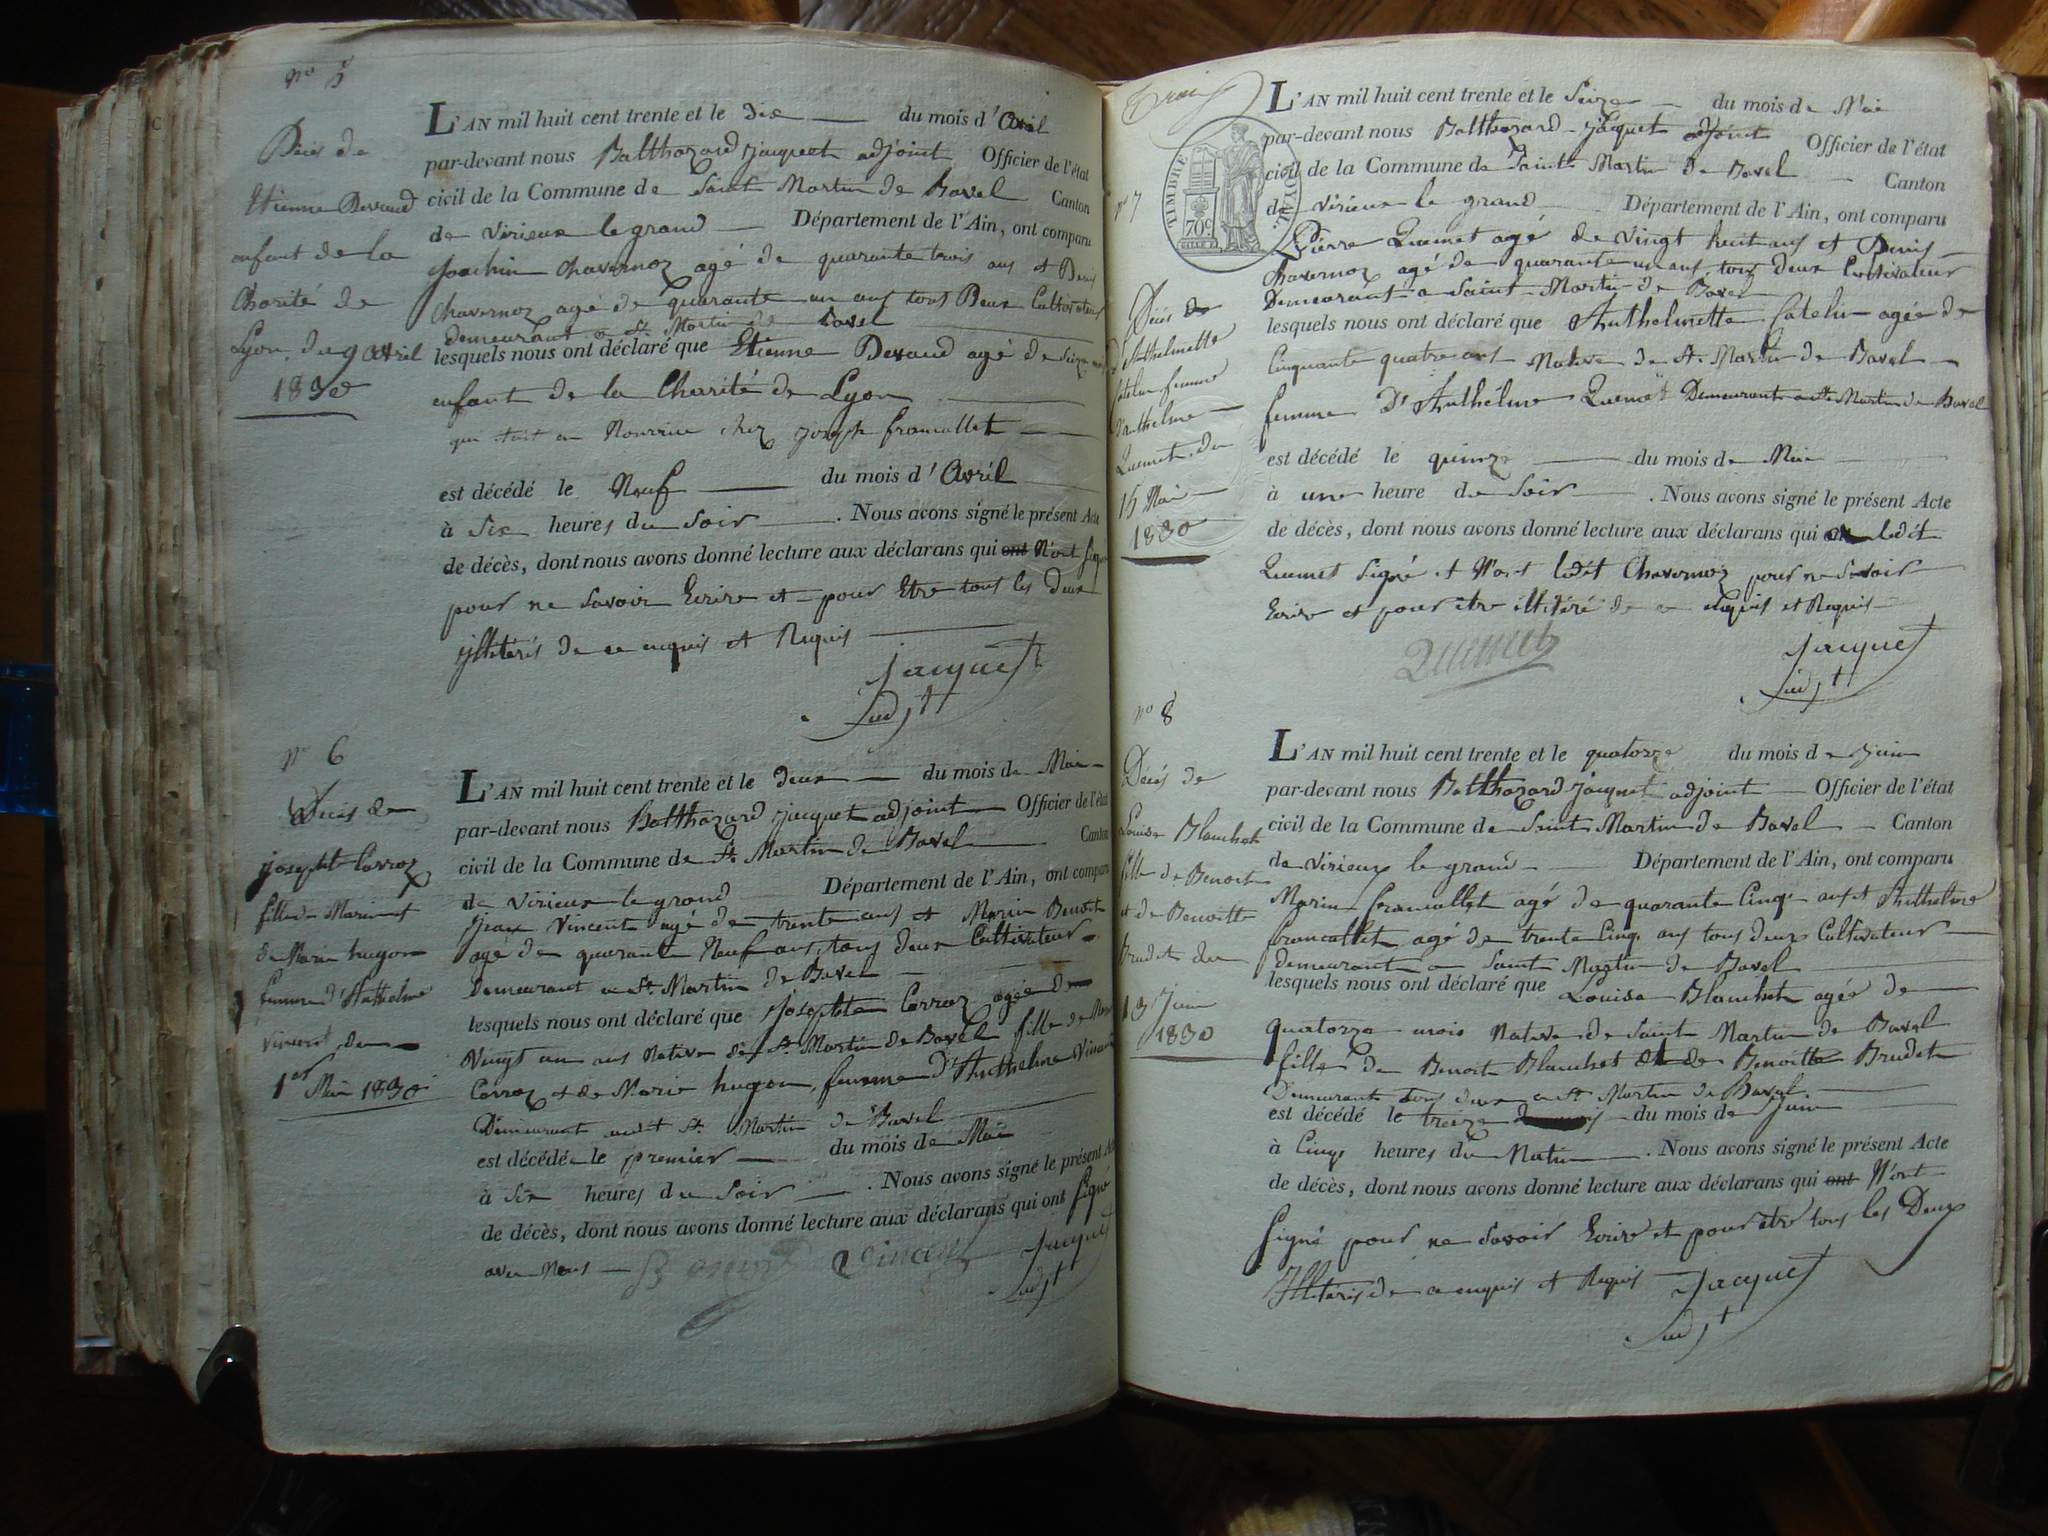 No 5
Décès de
Etienne Devaud
enfant de la
Charité de
Lyon, du 9 avril
1830
L'AN mil huit cent trente et le dix du mois d'Avril
par-devant nous Balthazard jacquet adjoint Officier de l'état
civil de la Commune de Saint Martin de Bavel Canton
de Virieux le grand Département de l'Ain, ont comparu
Joachim Chavernoz agé de quarante trois ans et Denis
Chavernoz agé de quarante un ans tous Deux Cultivateurs
demeurant a St. Martin de Bavel
lesquels nous ont déclaré que Etienne Devaud agé de Seize
enfant de la Charité de Lyon
qui étoit en Nourrice chez joseph francallet
est décédé le Neuf du mois d'Avril
à Six heures du Soir . Nous avons signé le présent Acte
de décès, dont nous avons donné lecture aux déclarans qui ont N'ont signé
pour ne Savoir Ecrire et pour Etre tous les deux
illitérés de ce enquis et Requis
Jacquet
adjt
No 6
Décès de
josephte Carroz
fille de Marin et
de Marie hugon
femme d'Anthelme
vincent du
1er Mai 1830
L'AN mil huit cent trente et le deux du mois de Mai
par-devant nous Balthazard jacquet adjoint Officier de l'état
civil de la Commune de St. Martin de Bavel Canton
de Virieux le grand Département de l'Ain, ont comparu
jean Vincent agé de trente ans et Marin Benoit
agé de quarante Neuf ans, tous deux Cultivateur
Demeurant a St. Martin de Bavel
lesquels nous ont déclaré que josephte Carroz agée de
Vingt un ans Native de St. Martin de Bavel fille de Marin
Carroz et de Marie hugon, femme D'Anthelme Vincent
Demeurant audit St. Martin de Bavel
est décédée le premier du mois de Mai
à Six heures du Soir . Nous avons signé le présent Acte
de décès, dont nous avons donné lecture aux déclarans qui ont Signé
avec Nous Benoit Vincent Jacquet
adjt
TIMBRE ROYAL
70c
No 7
Décès de
Anthelmette
Catelin femme
d'anthelme
Quemet du
15 Mai
1830
L'AN mil huit cent trente et le Seize du mois de Mai
par-devant nous Balthazard jacquet adjoint Officier de l'état
civil de la Commune de Saint Martin de Bavel Canton
de Virieux le grand Département de l'Ain, ont comparu
Pierre Quemet agé de Vingt huit ans et Denis
Chavernoz agé de quarante un ans, tous deux Cultivateur
Demeurant a Saint Martin de Bavel
lesquels nous ont déclaré que Anthelmette Catelin agée de
Cinquante quatre ans Native de St. Martin de Bavel
femme D'Anthelme Quemet Demeurant a St. Martin de Bavel
est décédé le quinze du mois de Mai
à une heure du Soir . Nous avons signé le présent Acte
de décès, dont nous avons donné lecture aux déclarans qui ledit
Quemet Signé et N'ont ledit Chavernoz pour ne Savoir
Ecrire et pour être illitéré de ce enquis et Requis
Quemet
Jacquet
adjt
No 8
Décès de
Louise Blanchet
fille de Benoit
et de Benoitte
Brudet du
13 Juin
1830
L'AN mil huit cent trente et le quatorze du mois de Juin
par-devant nous Balthazard jacquet adjoint Officier de l'état
civil de la Commune de Saint Martin de Bavel Canton
de Virieux le grand Département de l'Ain, ont comparu
Marin francallet agé de quarante Cinq ans et Anthelme
francallet agé de trente Cinq ans tous deux Cultivateur
demeurant a Saint Martin de Bavel
lesquels nous ont déclaré que Louise Blanchet agée de
quatorze mois Native de Saint Martin de Bavel
fille de Benoit Blanchet et de Benoitte Brudet
Demeurant tous deux a St Martin de Bavel
est décédé le treize du mois de Juin
à Cinq heures du Matin . Nous avons signé le présent Acte
de décès, dont nous avons donné lecture aux déclarans qui ont N'ont
Signé pour ne Savoir Ecrire et pour être tous les Deux
Illiterés de ce enquis et Requis Jacquet
adjt